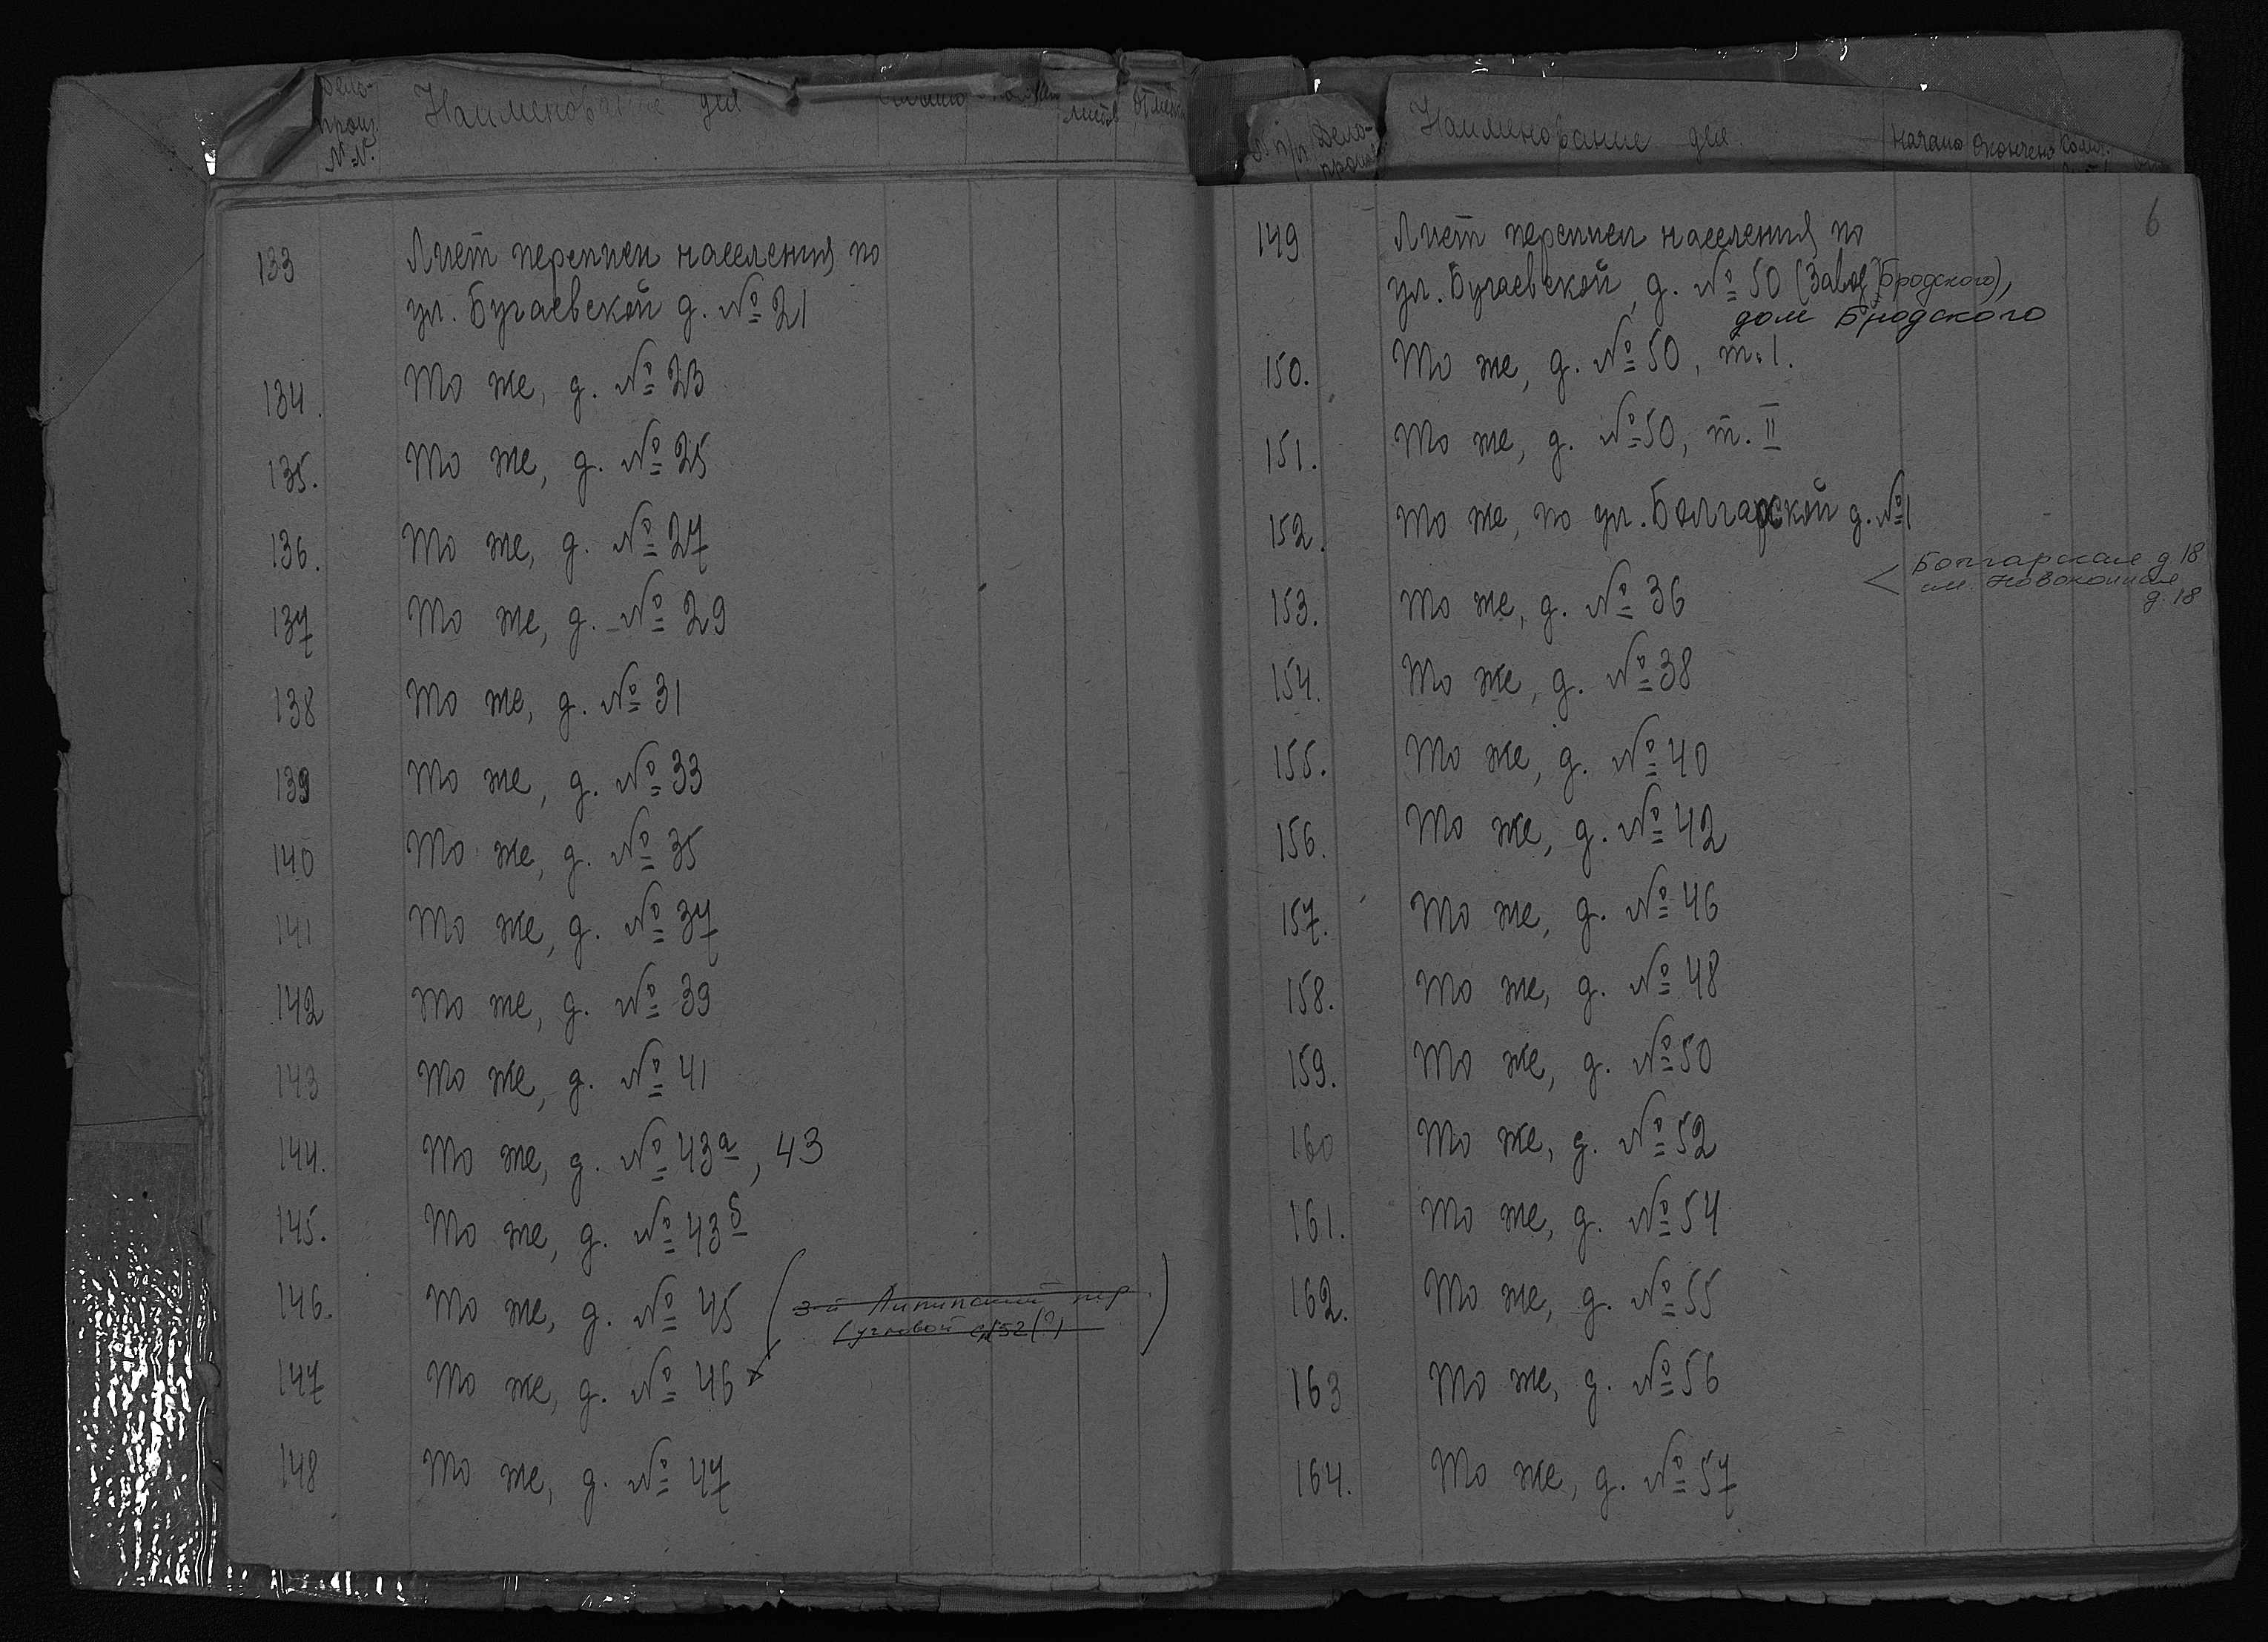 Дело-
произ.
№№
Наименование дел
листов
133 Лист переписи населения по
ул. Бугаевской д. № 21
134. То же, д. № 23
135. То же, д. № 25
136. То же, д. № 27
137 То же, д. № 29
138 То же, д. № 31
139 То же, д. № 33
140 То же, д. № 35
141 То же, д. № 37
142 То же, д. № 39
143 То же, д. № 41
144. То же, д. № 43а, 43
145. То же, д. № 43б
146. То же, д. № 45 (3-й пер.
угловой
147 То же, д. № 46
148 То же, д. № 47
№ п/п Дело-
произв.
Наименование дел. Начато Окончено
6
149 Лист переписи населения по
ул. Бугаевской, д. № 50 (Завод Бродского),
дом Бродского
150. То же, д. № 50, т. I.
151. То же, д. № 50, т. II
152. То же, по ул. Болгарской д. № 1
Болгарская д 18
д. 18
153. То же, д. № 36
154. То же, д. № 38
155. То же, д. № 40
156. То же, д. № 42
157. То же, д. № 46
158. То же, д. № 48
159. То же, д. № 50
160 То же, д. № 52
161. То же, д. № 54
162. То же, д. № 55
163 То же, д. № 56
164. То же, д. № 57